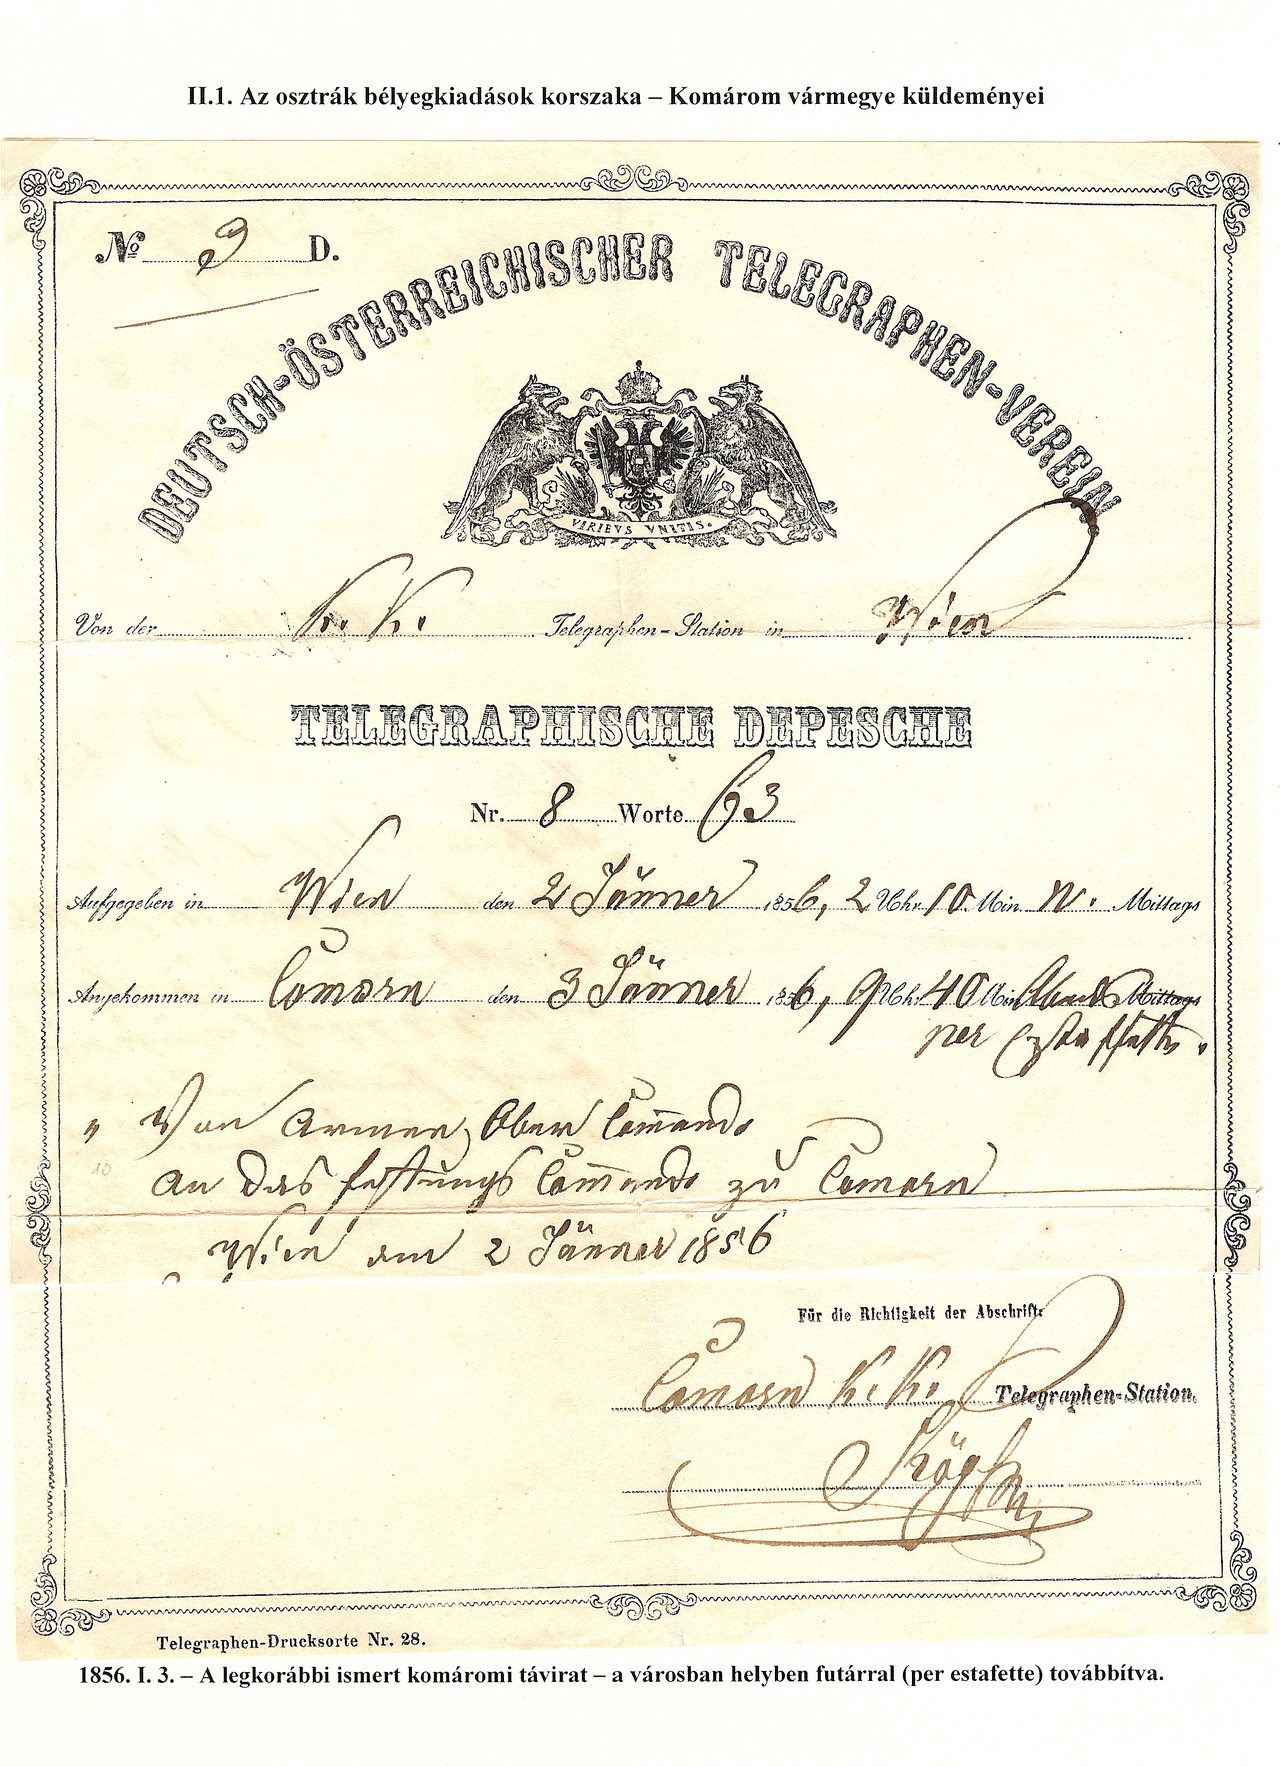 II.1. Az osztrák bélyegkiadások korszaka – Komárom vármegye küldeményei
No 9 D.
DEUTSCH-ÖSTERREICHISCHER TELEGRAPHEN-VEREIN
VIRIBVS VNITIS.
Von der K. K. Telegraphen-Station in Wien
TELEGRAPHISCHE DEPESCHE
Nr. 8 Worte 63
Aufgegeben in Wien den 2 Jänner 1856, 2 Uhr 10 Min. N. Mittags
Angekommen in Comorn den 3 Jänner 1856, 9 Uhr 40 Min Abends Mittags
per Estaffette.
" Von Armee Ober Commando
an das Festungs Commando zu Comorn
Wien am 2 Jänner 1856
10
Für die Richtigkeit der Abschrift:
Comorn K. K. Telegraphen-Station.
Telegraphen-Drucksorte Nr. 28.
1856. I. 3. – A legkorábbi ismert komáromi távirat – a városban helyben futárral (per estafette) továbbítva.